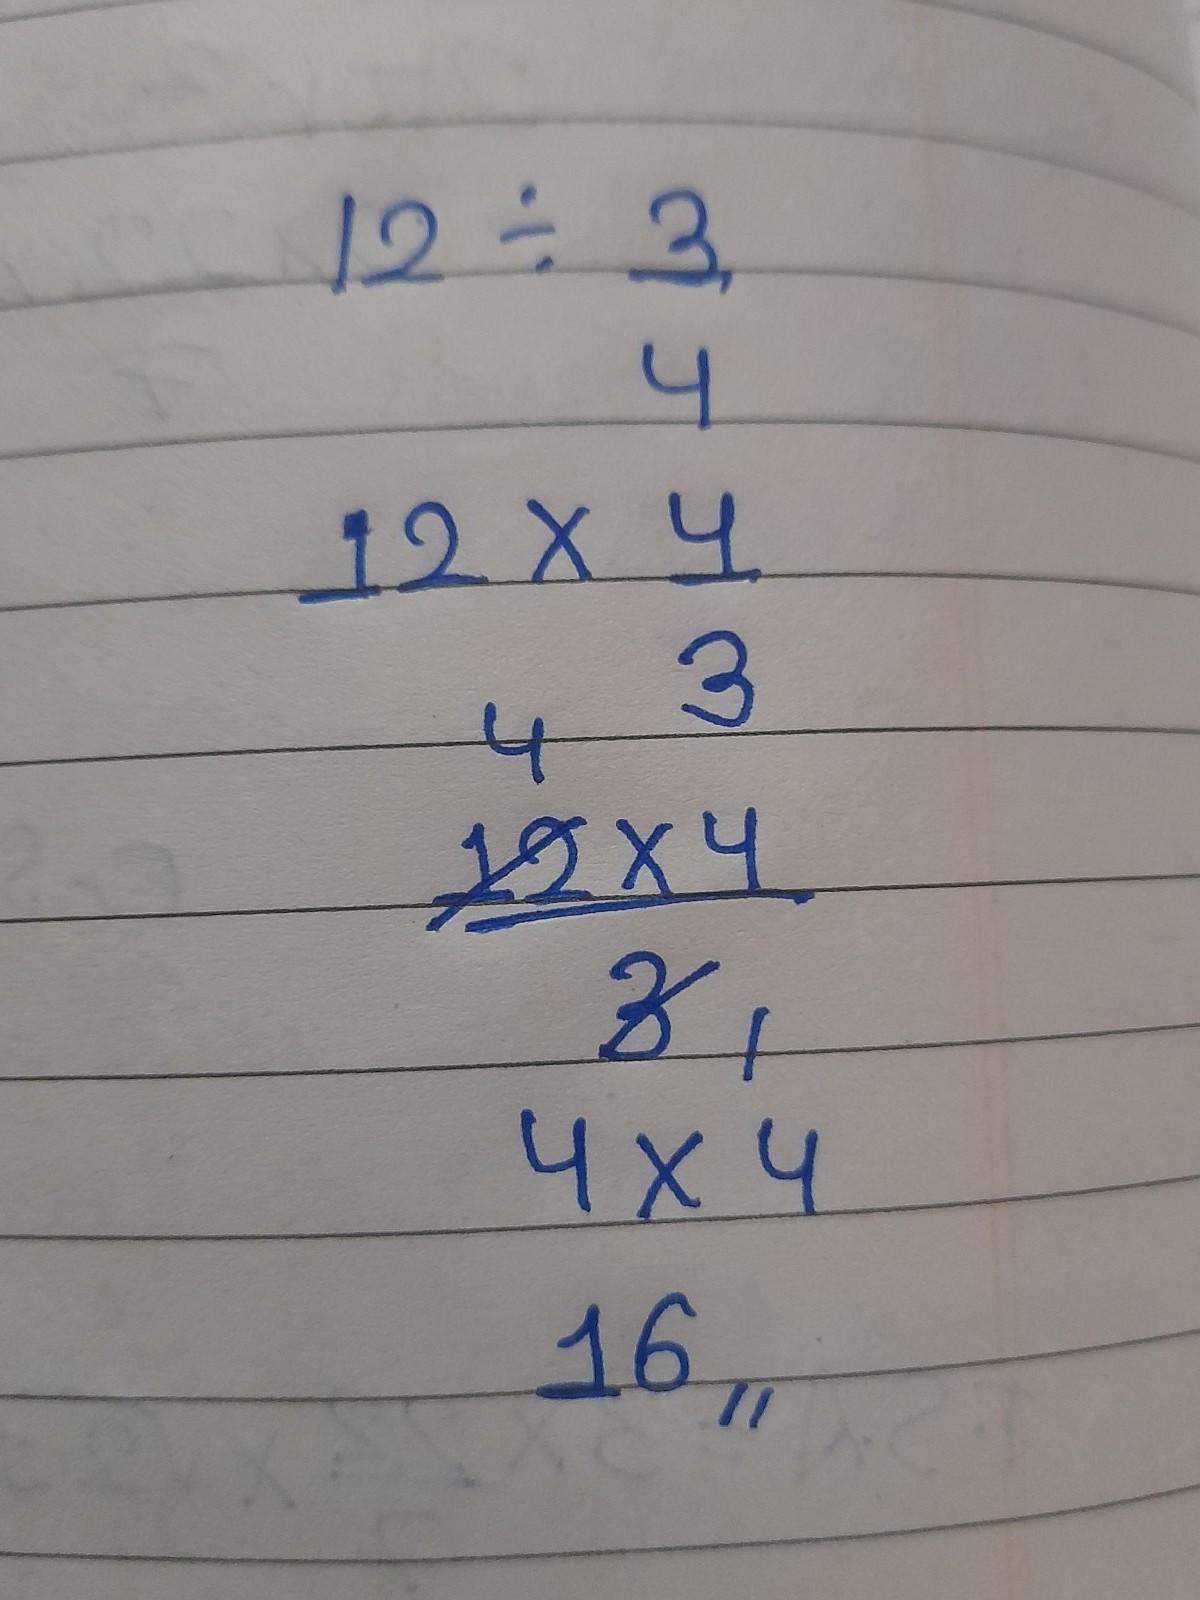 12 ÷ 3
4
12 x 4
3
4
12 x 4
3 1
4 x 4
16 〃